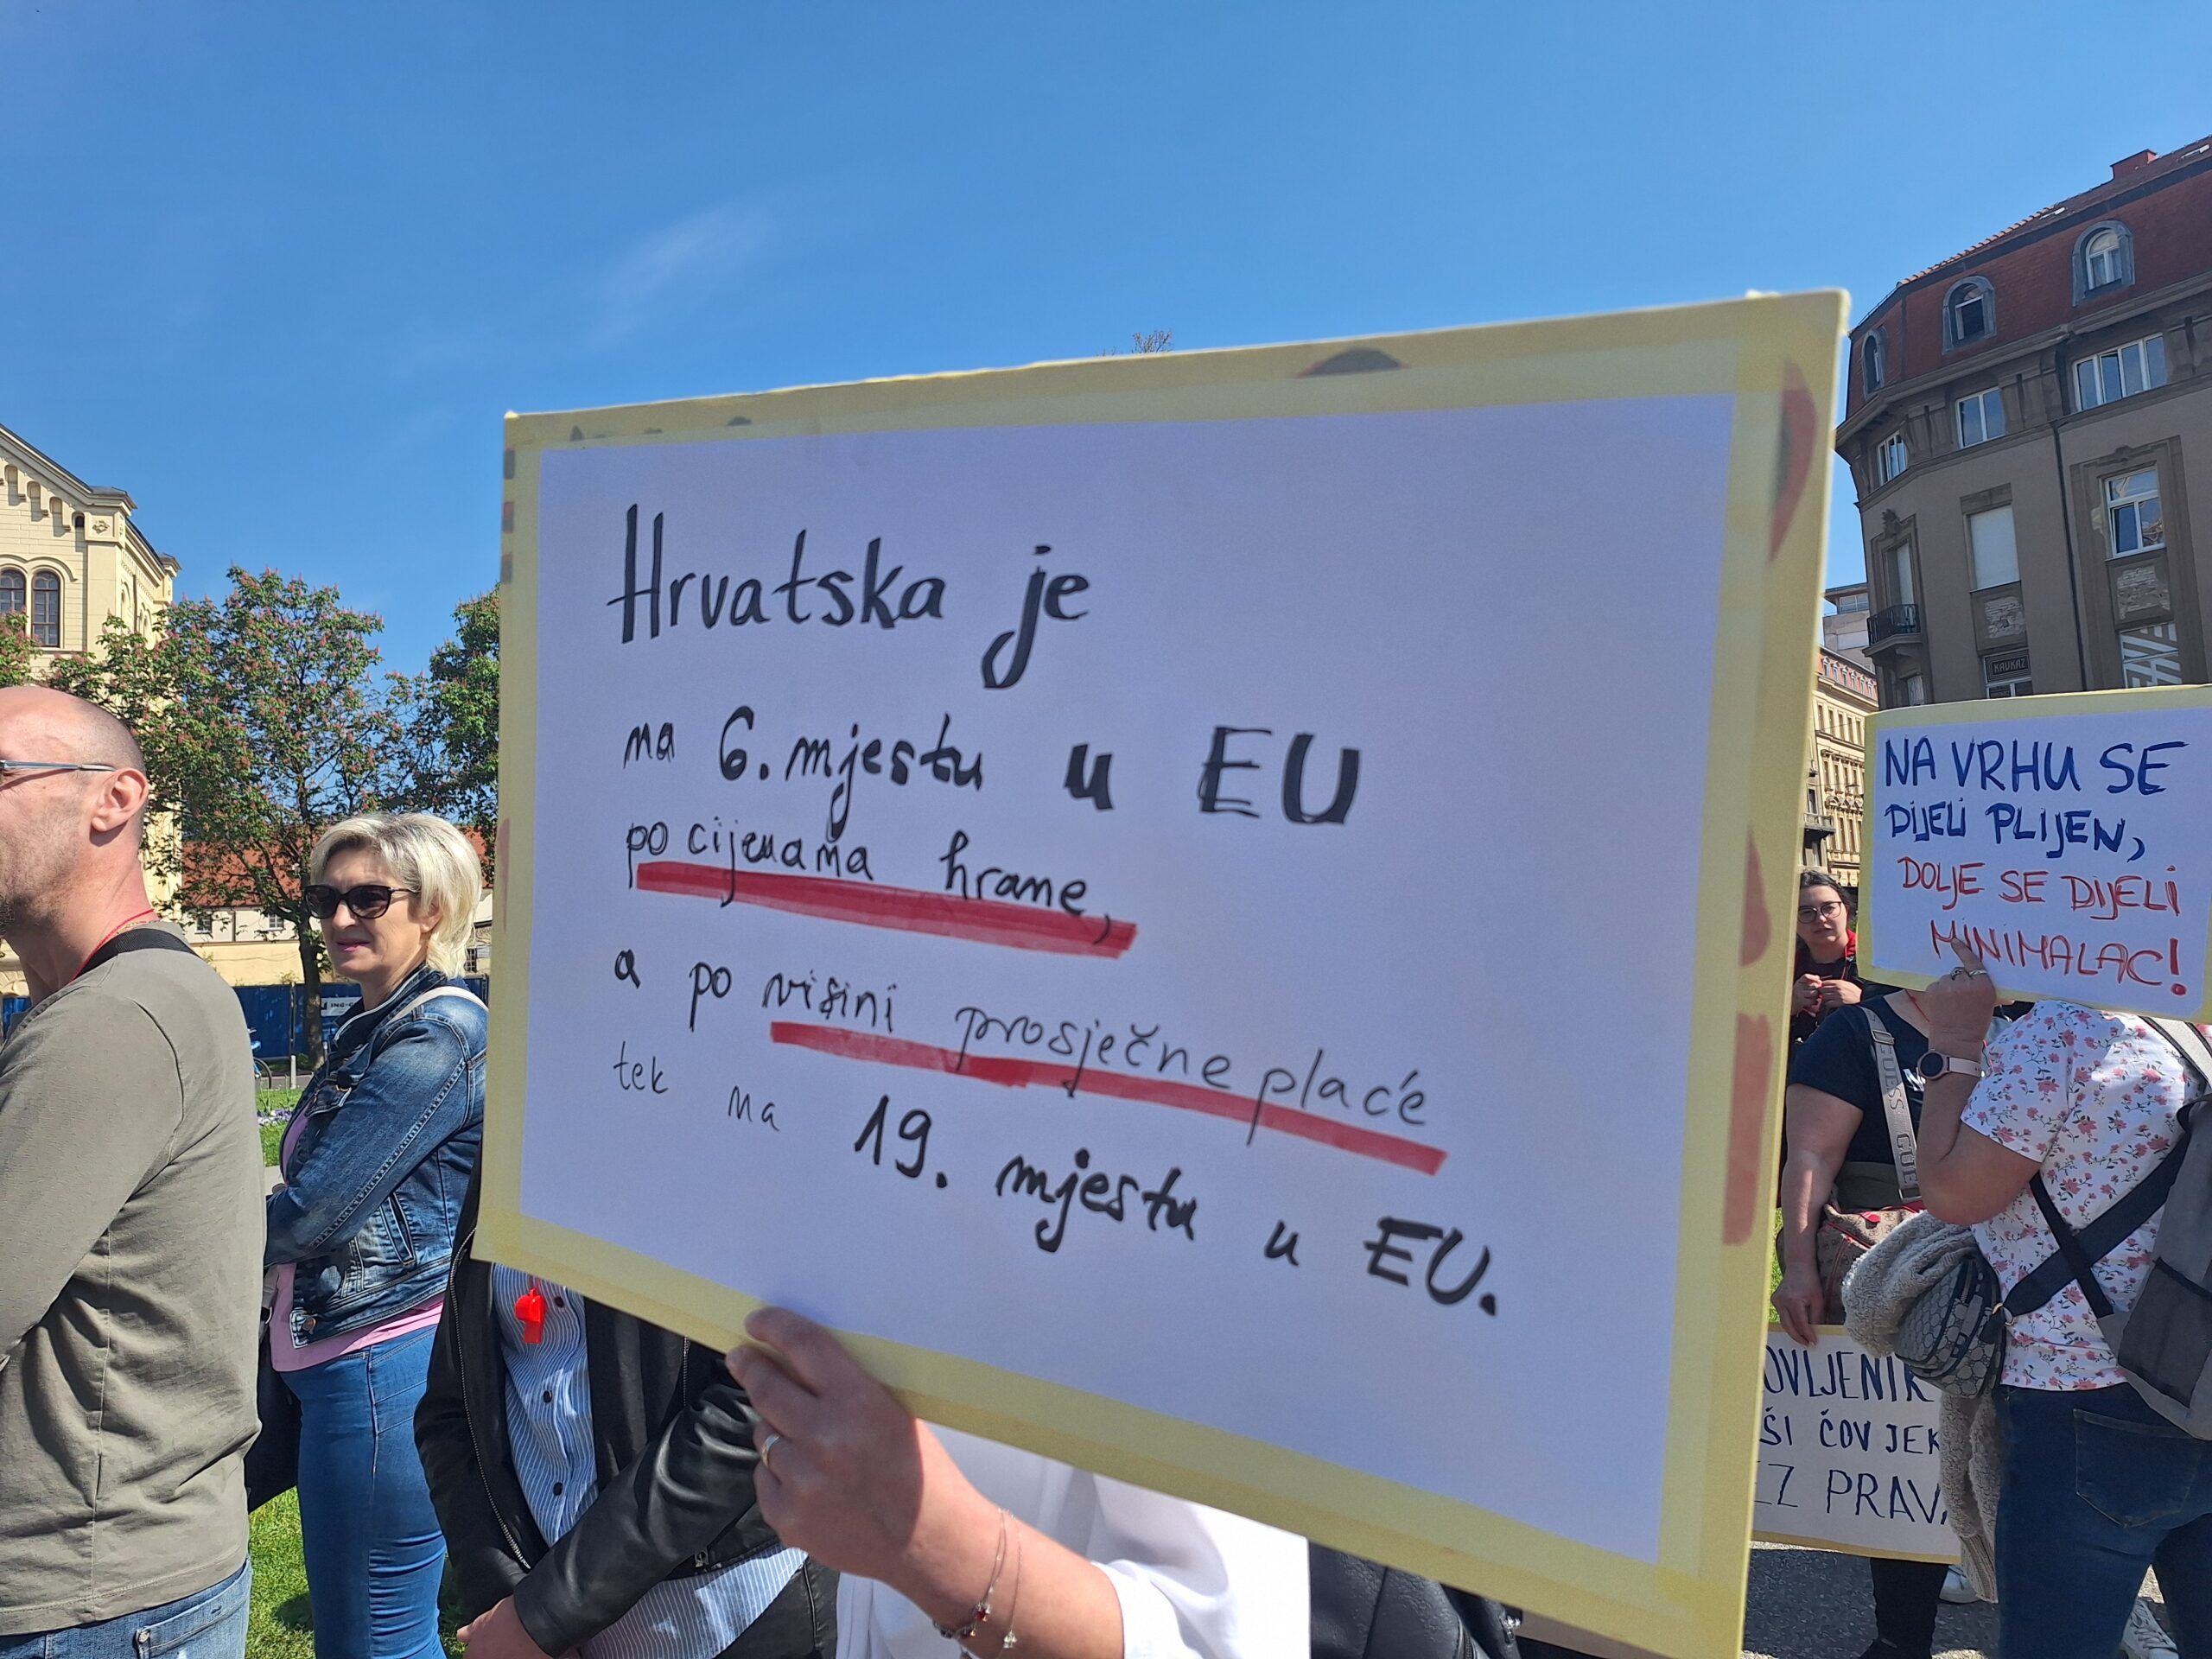 Hrvatska je
na 6. mjestu u EU
po cijenama hrane,
a po visini prosječne plaće
tek na 19. mjestu u EU.
NA VRHU SE
DIJELI PLIJEN,
DOLJE SE DIJELI
MINIMALAC!
OVLJENIK
ŠI ČOVJEK
EZ PRAVA
KAVKAZ
GUESS